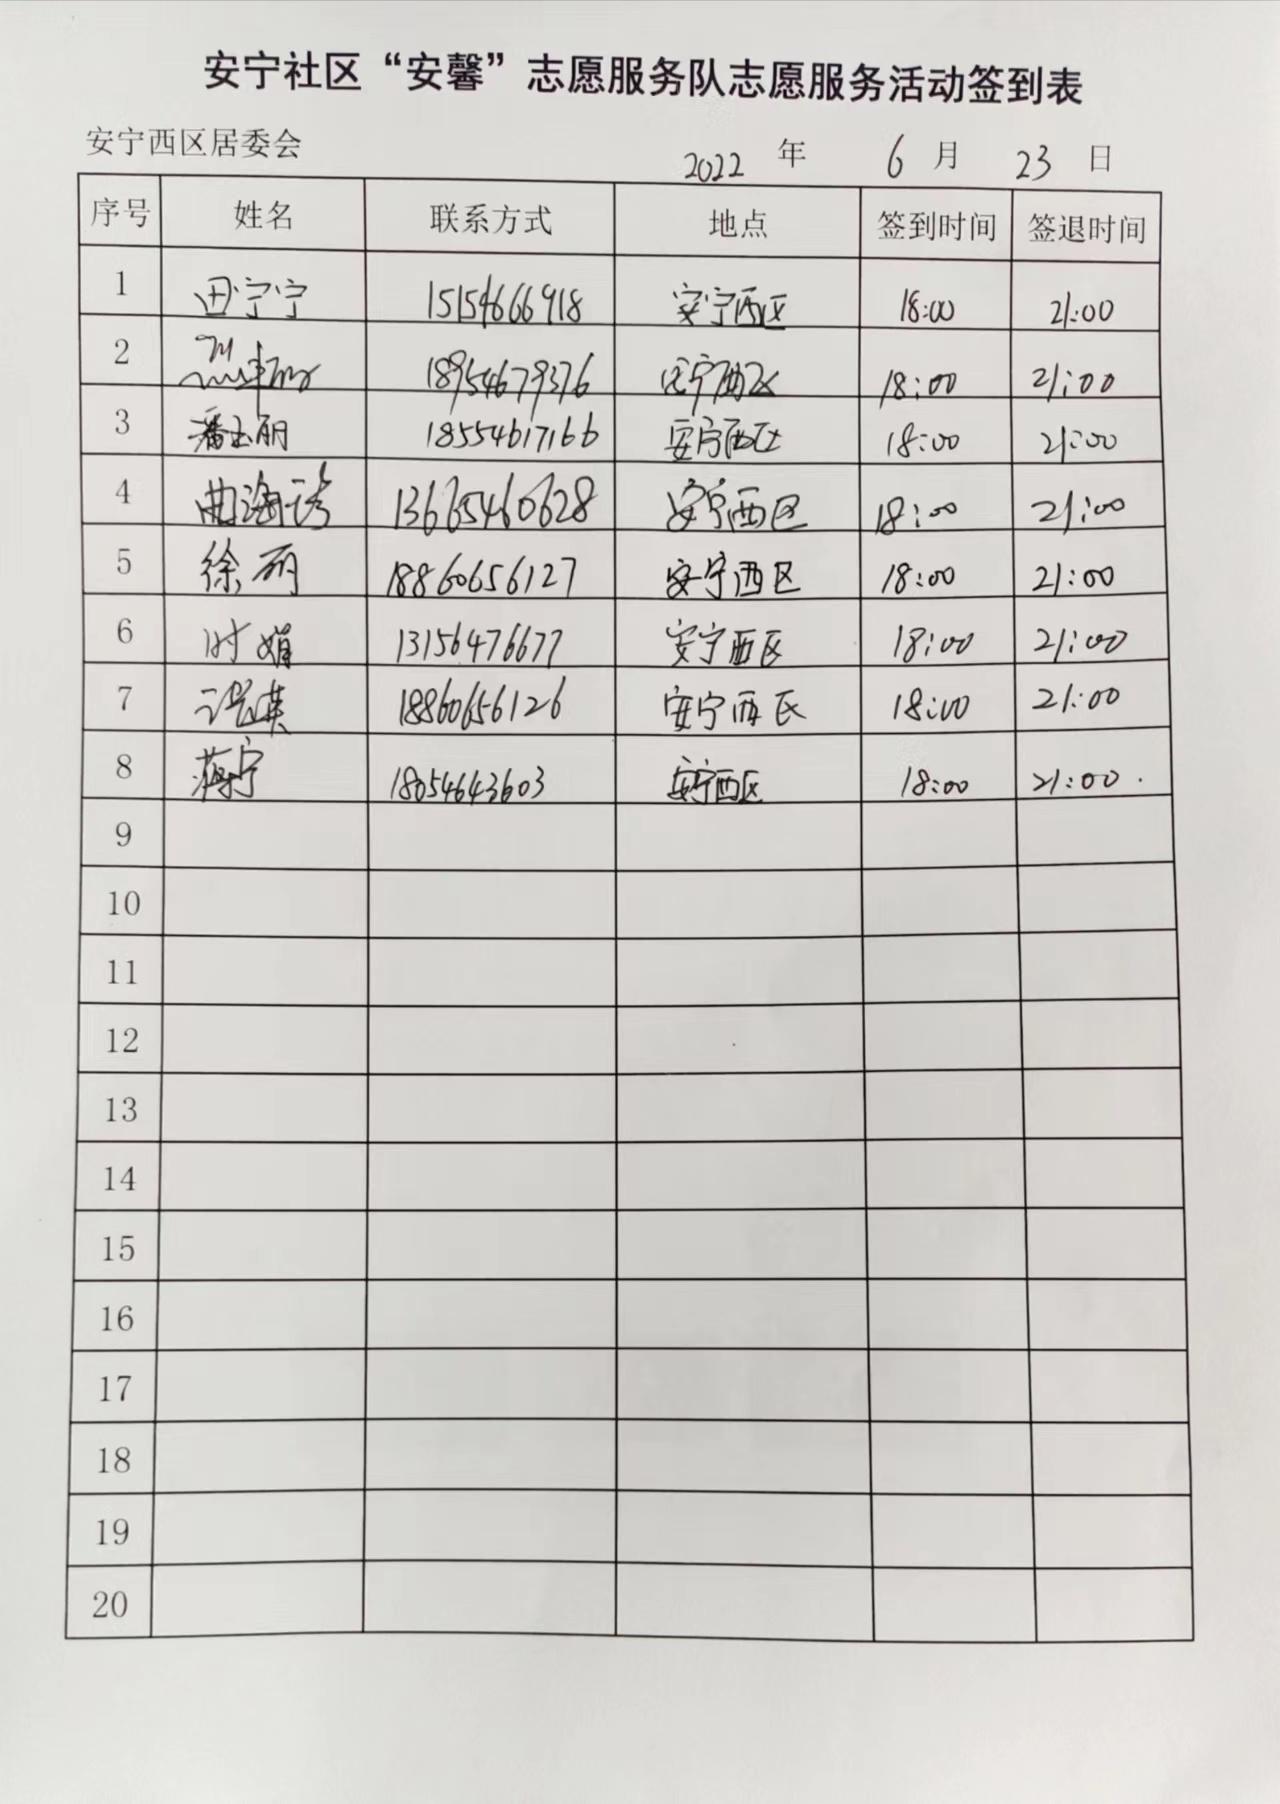 安宁社区“安馨”志愿服务队志愿服务活动签到表
安宁西区居委会 2022 年 6 月 23 日
序号 姓名 联系方式 地点 签到时间 签退时间
1 田宁宁 15154666918 安宁西区 18:00 21:00
2 18954679376 安宁西区 18:00 21:00
3 潘玉丽 18554617166 安宁西区 18:00 21:00
4 曲海涛 13665460628 安宁西区 18:00 21:00
5 徐丽 18860656127 安宁西区 18:00 21:00
6 时娟 13156476677 安宁西区 18:00 21:00
7 18860656126 安宁西区 18:00 21:00
8 蒋宁 18054643603 安宁西区 18:00 21:00
9
10
11
12
13
14
15
16
17
18
19
20